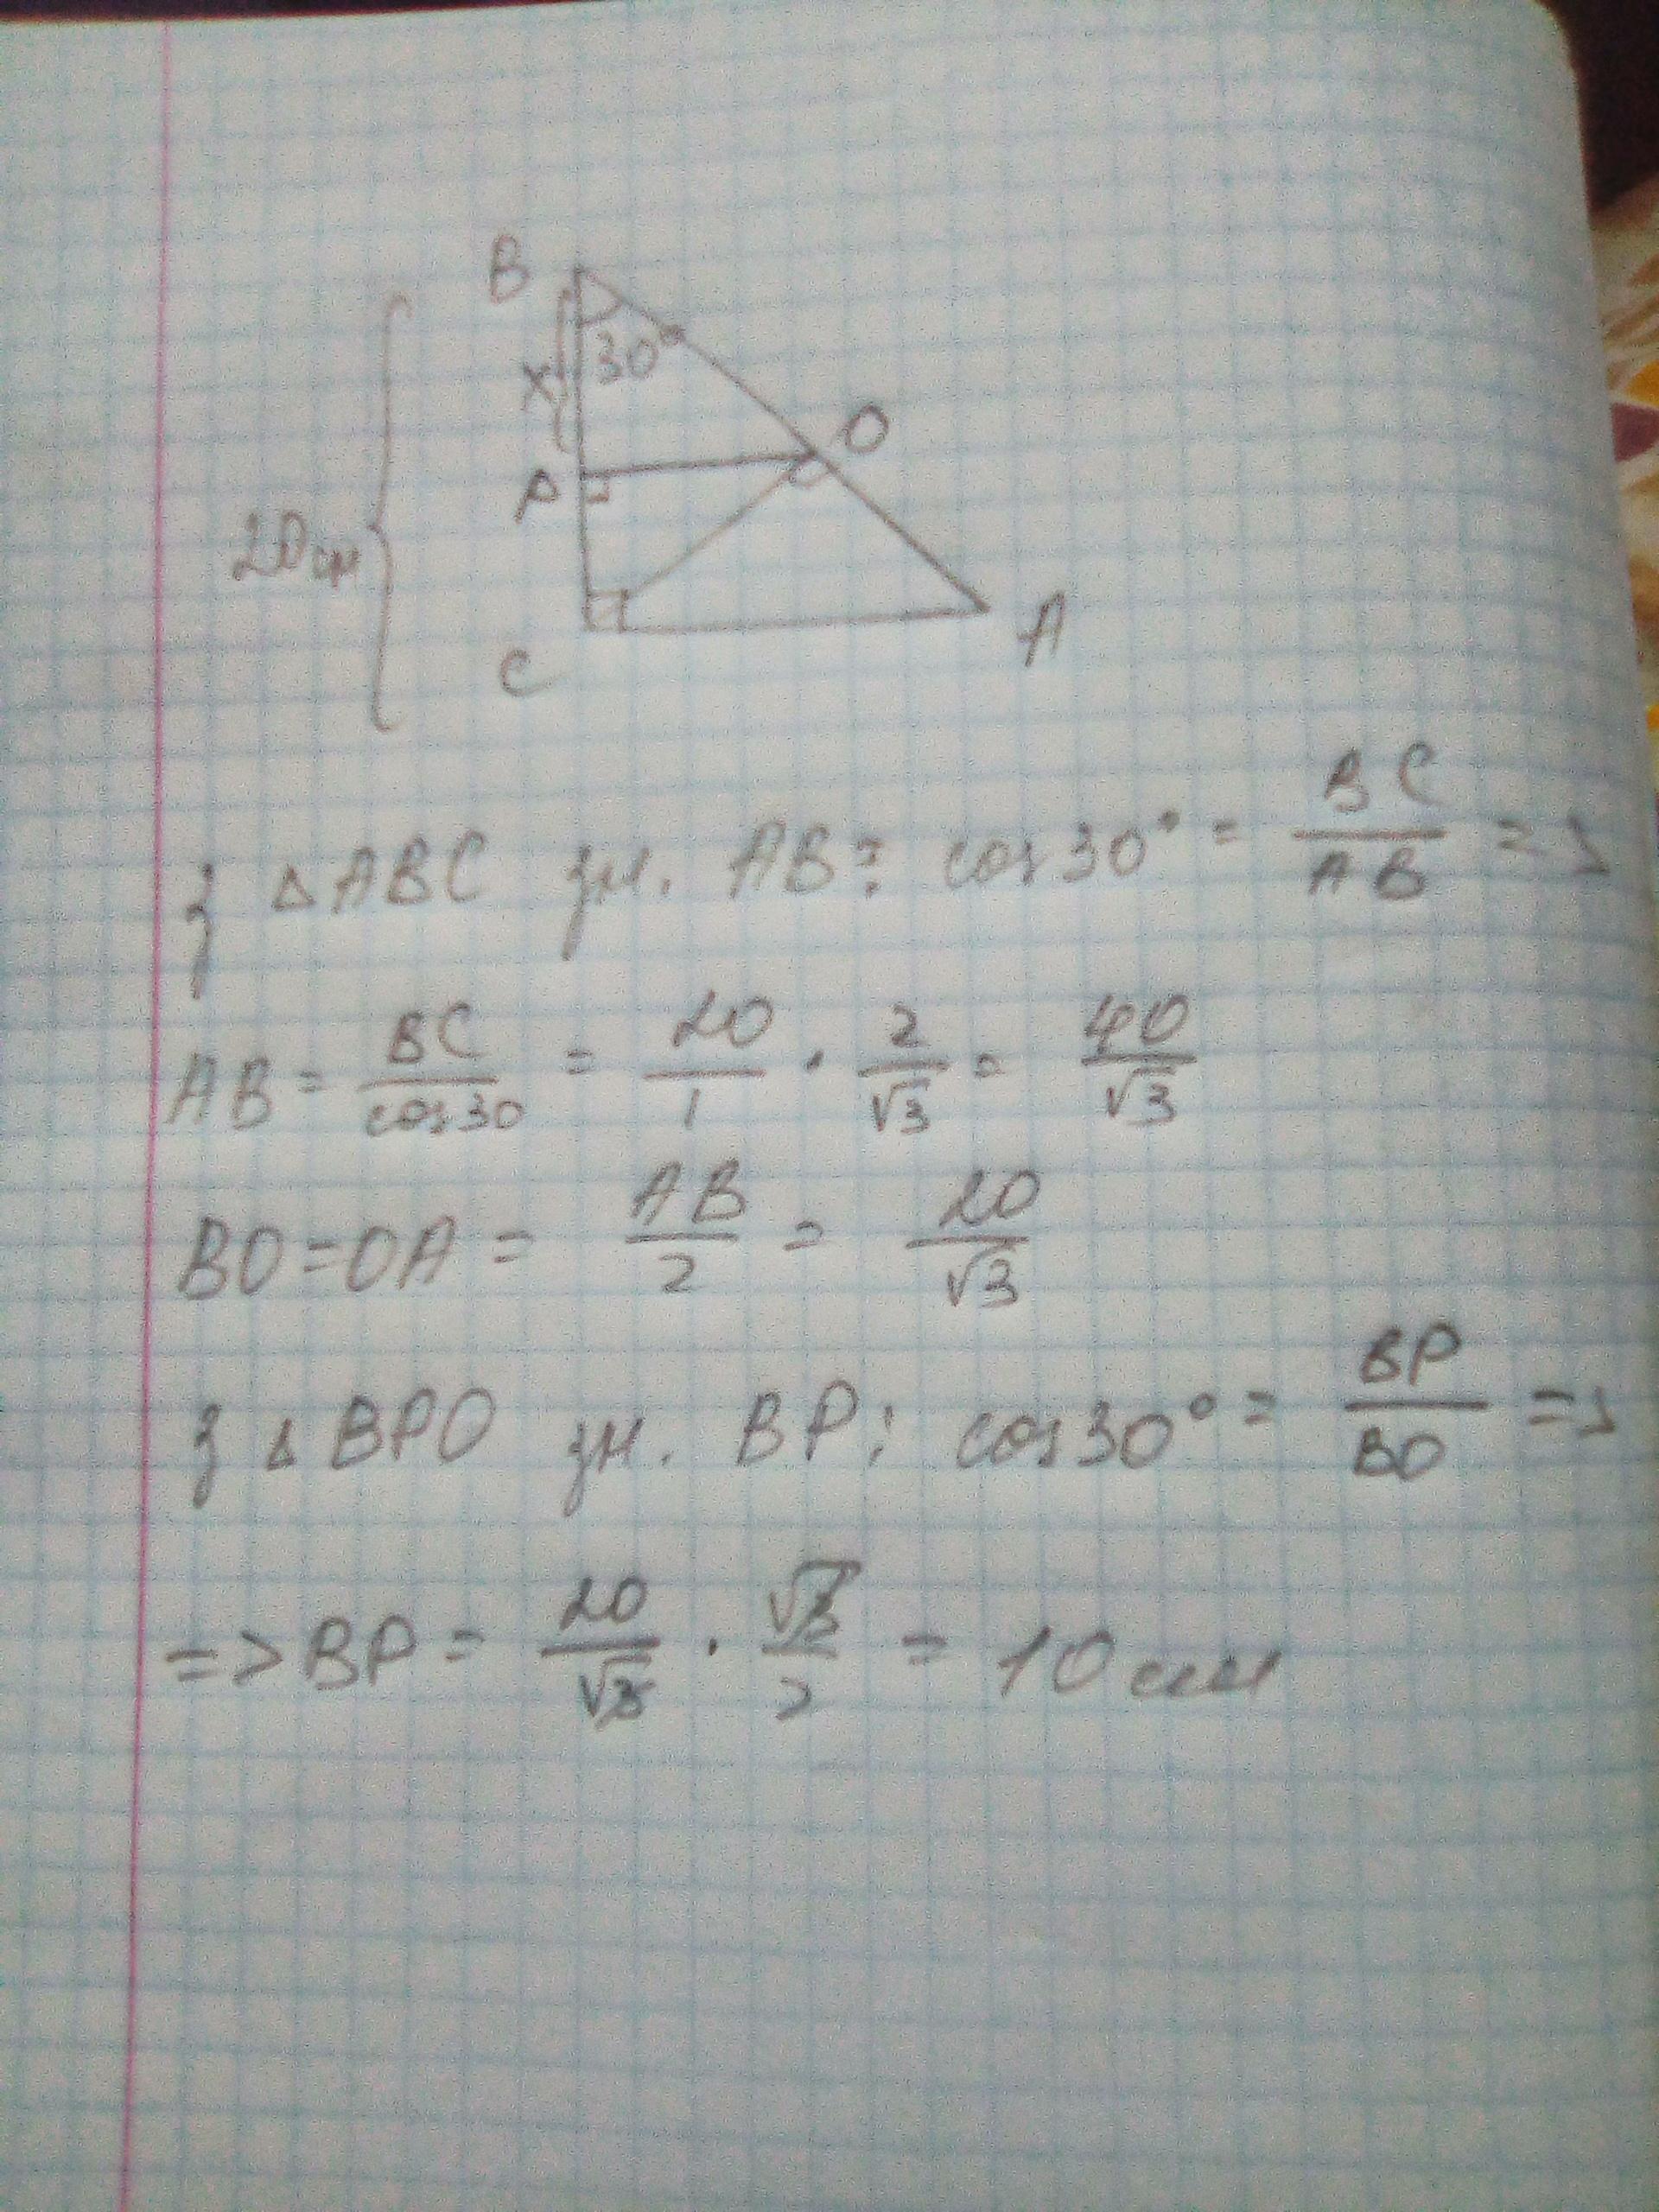 B
30°
x
O
P
20см
A
C
з △ABC зн. AB: cos30° = BC/AB =>
AB = BC/cos30 = 20/1 · 2/√3 = 40/√3
BO=OA = AB/2 = 20/√3
з △BPO зн. BP: cos30° = BP/BO =>
=> BP = 20/√3 · √3/2 = 10см